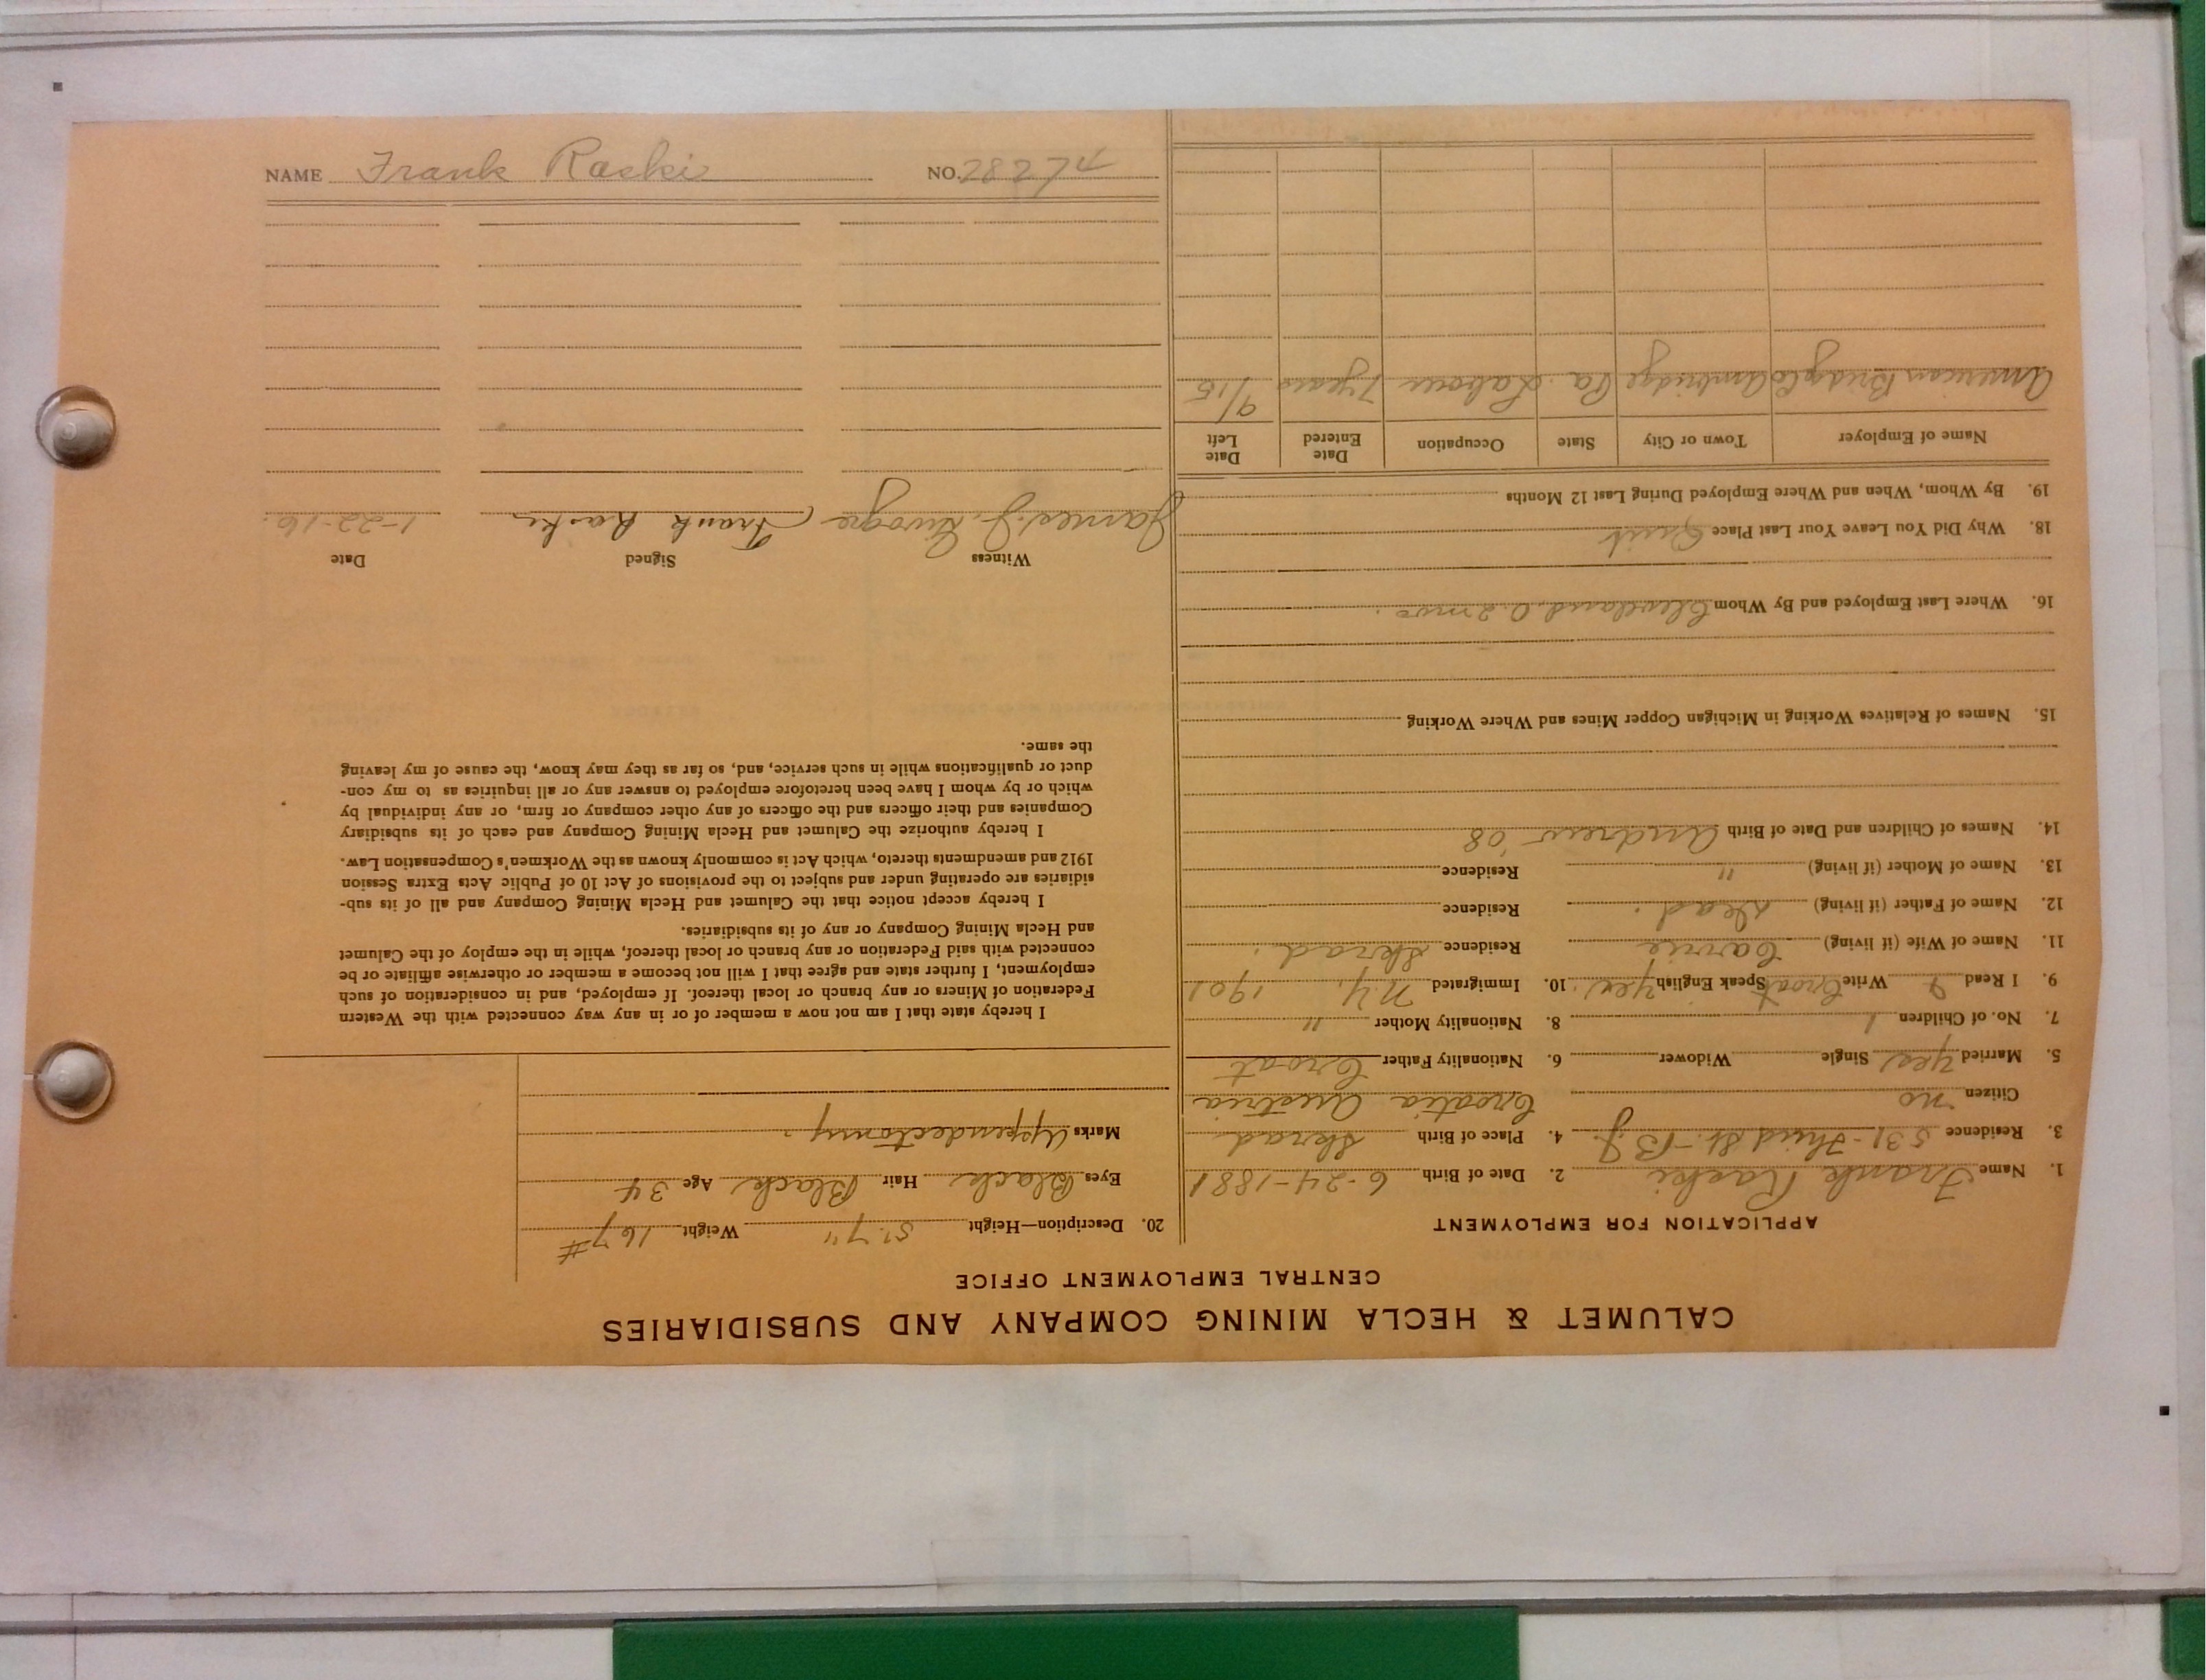 CALUMET & HECLA MINING COMPANY AND SUBSIDIARIES
CENTRAL EMPLOYMENT OFFICE
APPLICATION FOR EMPLOYMENT
1. Name Frank Raski 2. Date of Birth 6-24-1881
3. Residence 531-Third St.- 4. Place of Birth Skrad
Citizen no Croatia Austria
5. Married yes Single Widower 6. Nationality Father Croat
7. No. of Children 1 8. Nationality Mother "
9. I Read Write Croat Speak English yes. 10. Immigrated N.Y. 1901
11. Name of Wife (if living) Carrie Residence Skrad.
12. Name of Father (if living) dead. Residence
13. Name of Mother (if living) " Residence
14. Names of Children and Date of Birth Andrew '08
15. Names of Relatives Working in Michigan Copper Mines and Where Working
16. Where Last Employed and By Whom Cleveland, O. 2 mos.
18. Why Did You Leave Your Last Place Quit
19. By Whom, When and Where Employed During Last 12 Months
Name of Employer Town or City State Occupation Date Entered Date Left
American Bridge Co Ambridge Pa. Labour 7 years 9/15
20. Description—Height 5' 7" Weight 167#
Eyes Black Hair Black Age 34
Marks Appendectomy
I hereby state that I am not now a member of or in any way connected with the Western
Federation of Miners or any branch or local thereof. If employed, and in consideration of such
employment, I further state and agree that I will not become a member or otherwise affiliate or be
connected with said Federation or any branch or local thereof, while in the employ of the Calumet
and Hecla Mining Company or any of its subsidiaries.
I hereby accept notice that the Calumet and Hecla Mining Company and all of its sub-
sidiaries are operating under and subject to the provisions of Act 10 of Public Acts Extra Session
1912 and amendments thereto, which Act is commonly known as the Workmen's Compensation Law.
I hereby authorize the Calumet and Hecla Mining Company and each of its subsidiary
Companies and their officers and the officers of any other company or firm, or any individual by
which or by whom I have been heretofore employed to answer any or all inquiries as to my con-
duct or qualifications while in such service, and, so far as they may know, the cause of my leaving
the same.
Witness Signed Date
James J. Frank Raski 1-22-16.
NAME Frank Raski NO. 28274